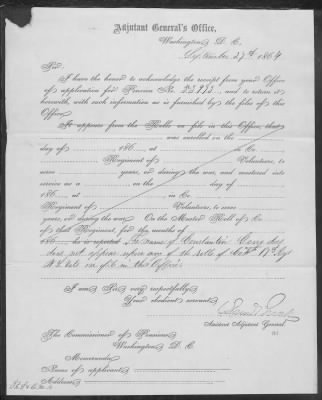 Adjutant General's Office,
Washington, D. C.
September 27th 1864
Sir:
I have the honor to acknowledge the receipt from your Office
of application for Pension No. and to return it
herewith, with such information as is furnished by the files of this
Office.
It appears from the Rolls on file in this Office, that
was enrolled on the
day of 186 , at in Co.
Regiment of Volunteers, to
serve years, or during the war, and mustered into
service as a on the day of
186 , at , in Co.
Regiment of Volunteers, to serve
years, or during the war. On the Muster Roll of Co.
of that Regiment, for the months of
186 , he is reported The name of Constantin
does not appear upon any of the rolls of Co "H" Regt
Vols on file in this Office
I am, Sir, very respectfully,
Your obedient servant,
Assistant Adjutant General.
The Commissioner of Pensions,
Washington, D. C.
Memoranda:
Name of applicant
Address